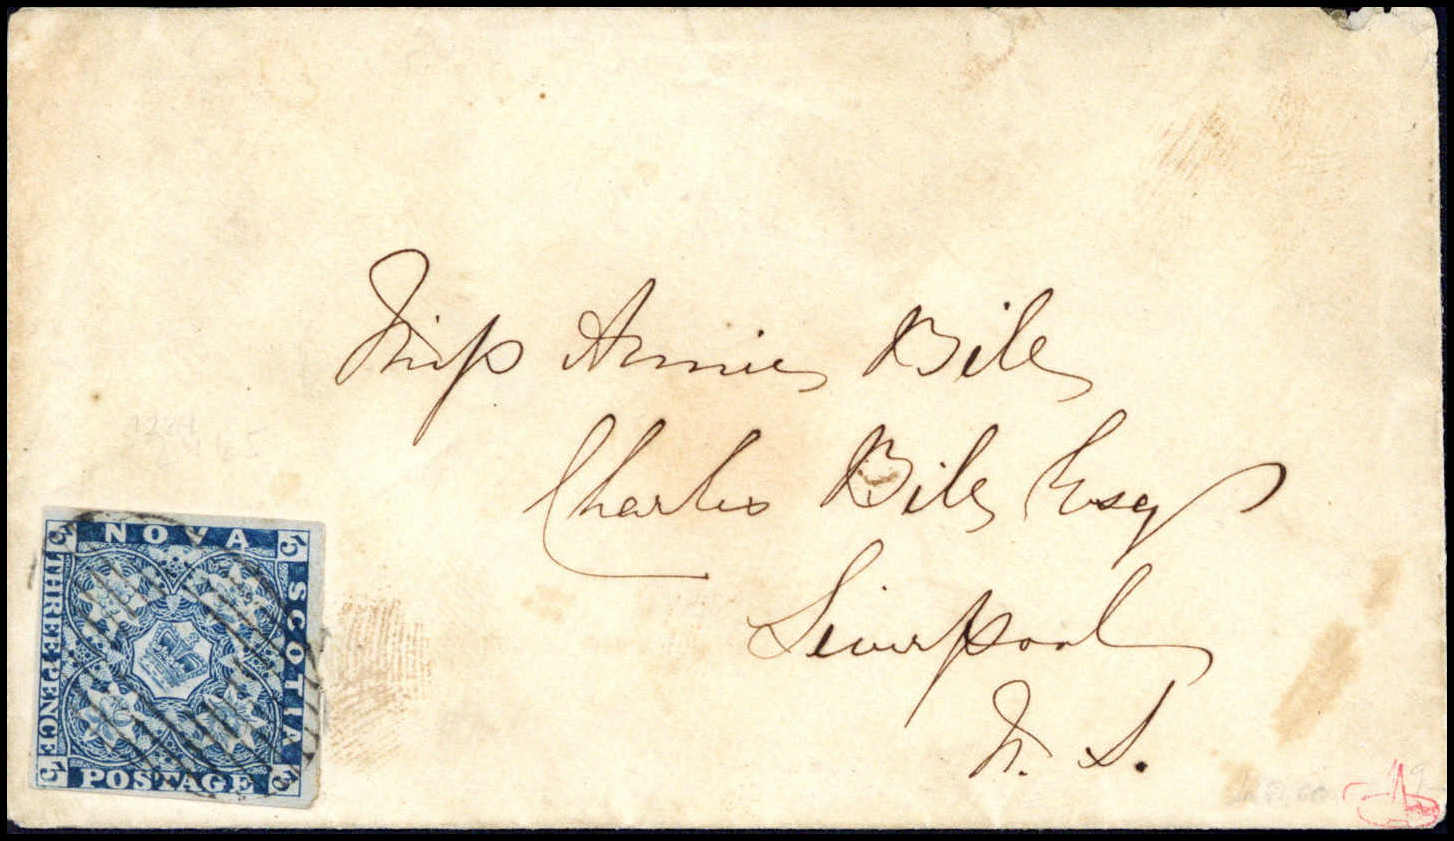 Miss Annie Bile
Charles Bile Esqr
Liverpool
N. S.
NOVA
SCOTIA
THREE PENCE
POSTAGE